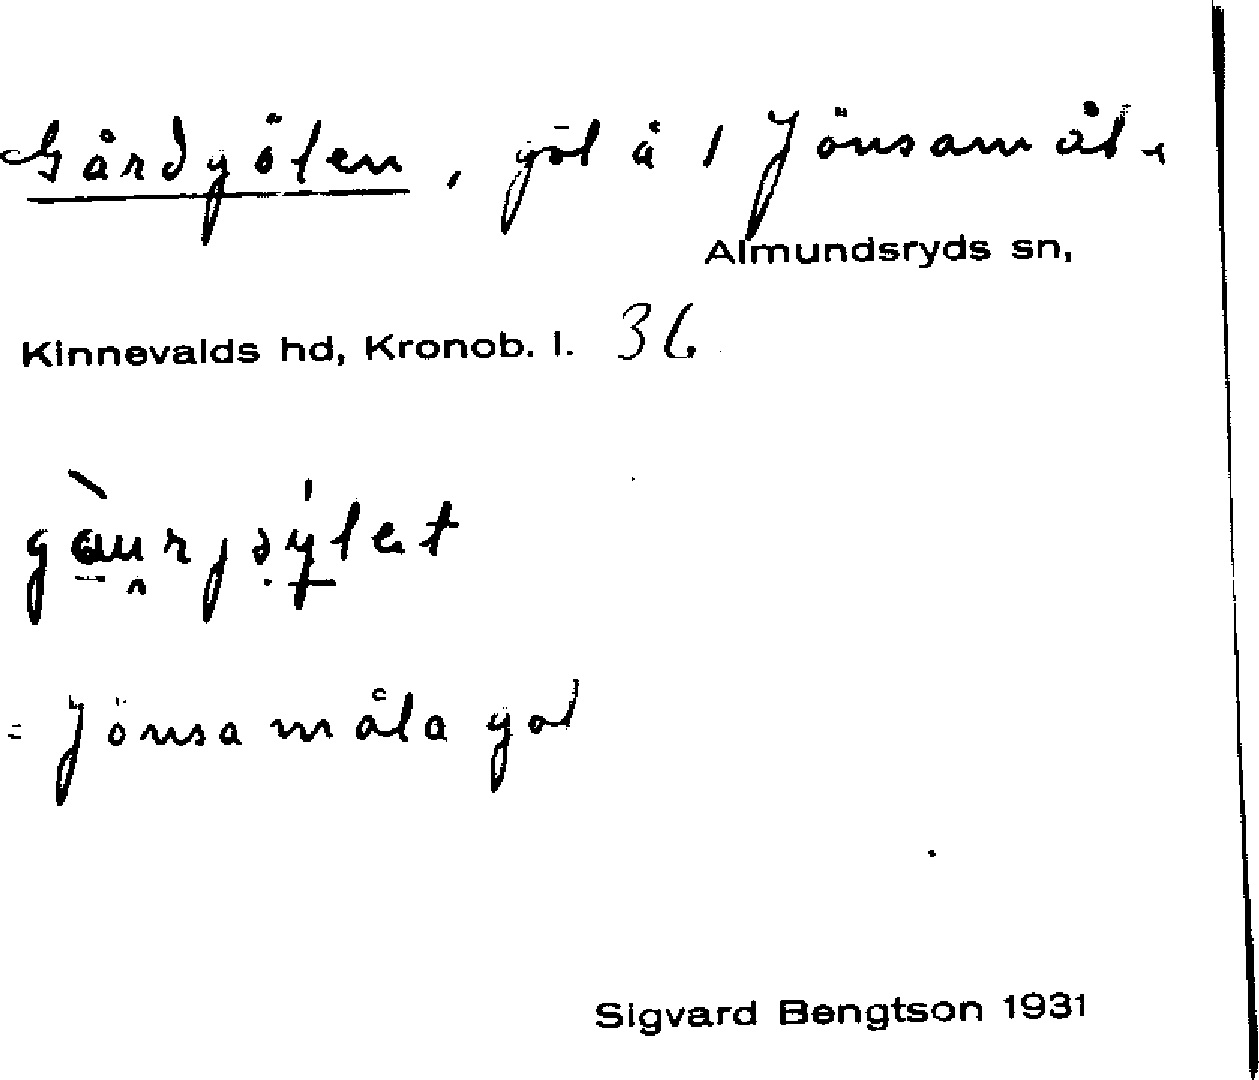 Gårdgölen, göl å 1 Jönsamål.
Almundsryds sn,
Kinnevalds hd, Kronob. l. 36
= Jönsamåla göl
Sigvard Bengtson 1931